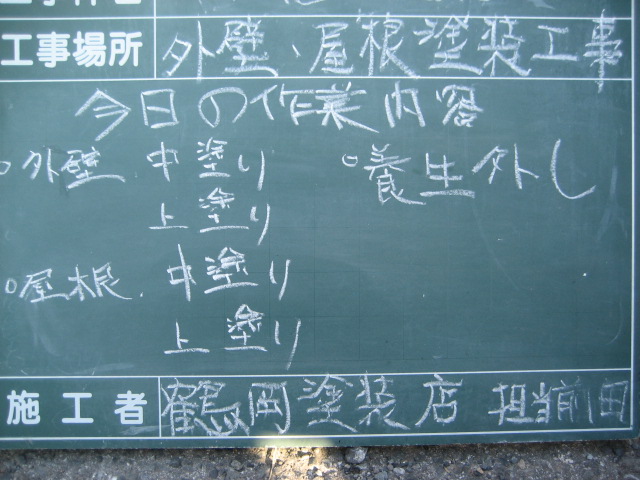 工事場所 外壁、屋根塗装工事
今日の作業内容
○外壁 中塗り ○養生外し
上塗り
○屋根. 中塗り
上塗り
施工者 鶴岡塗装店 担当前田